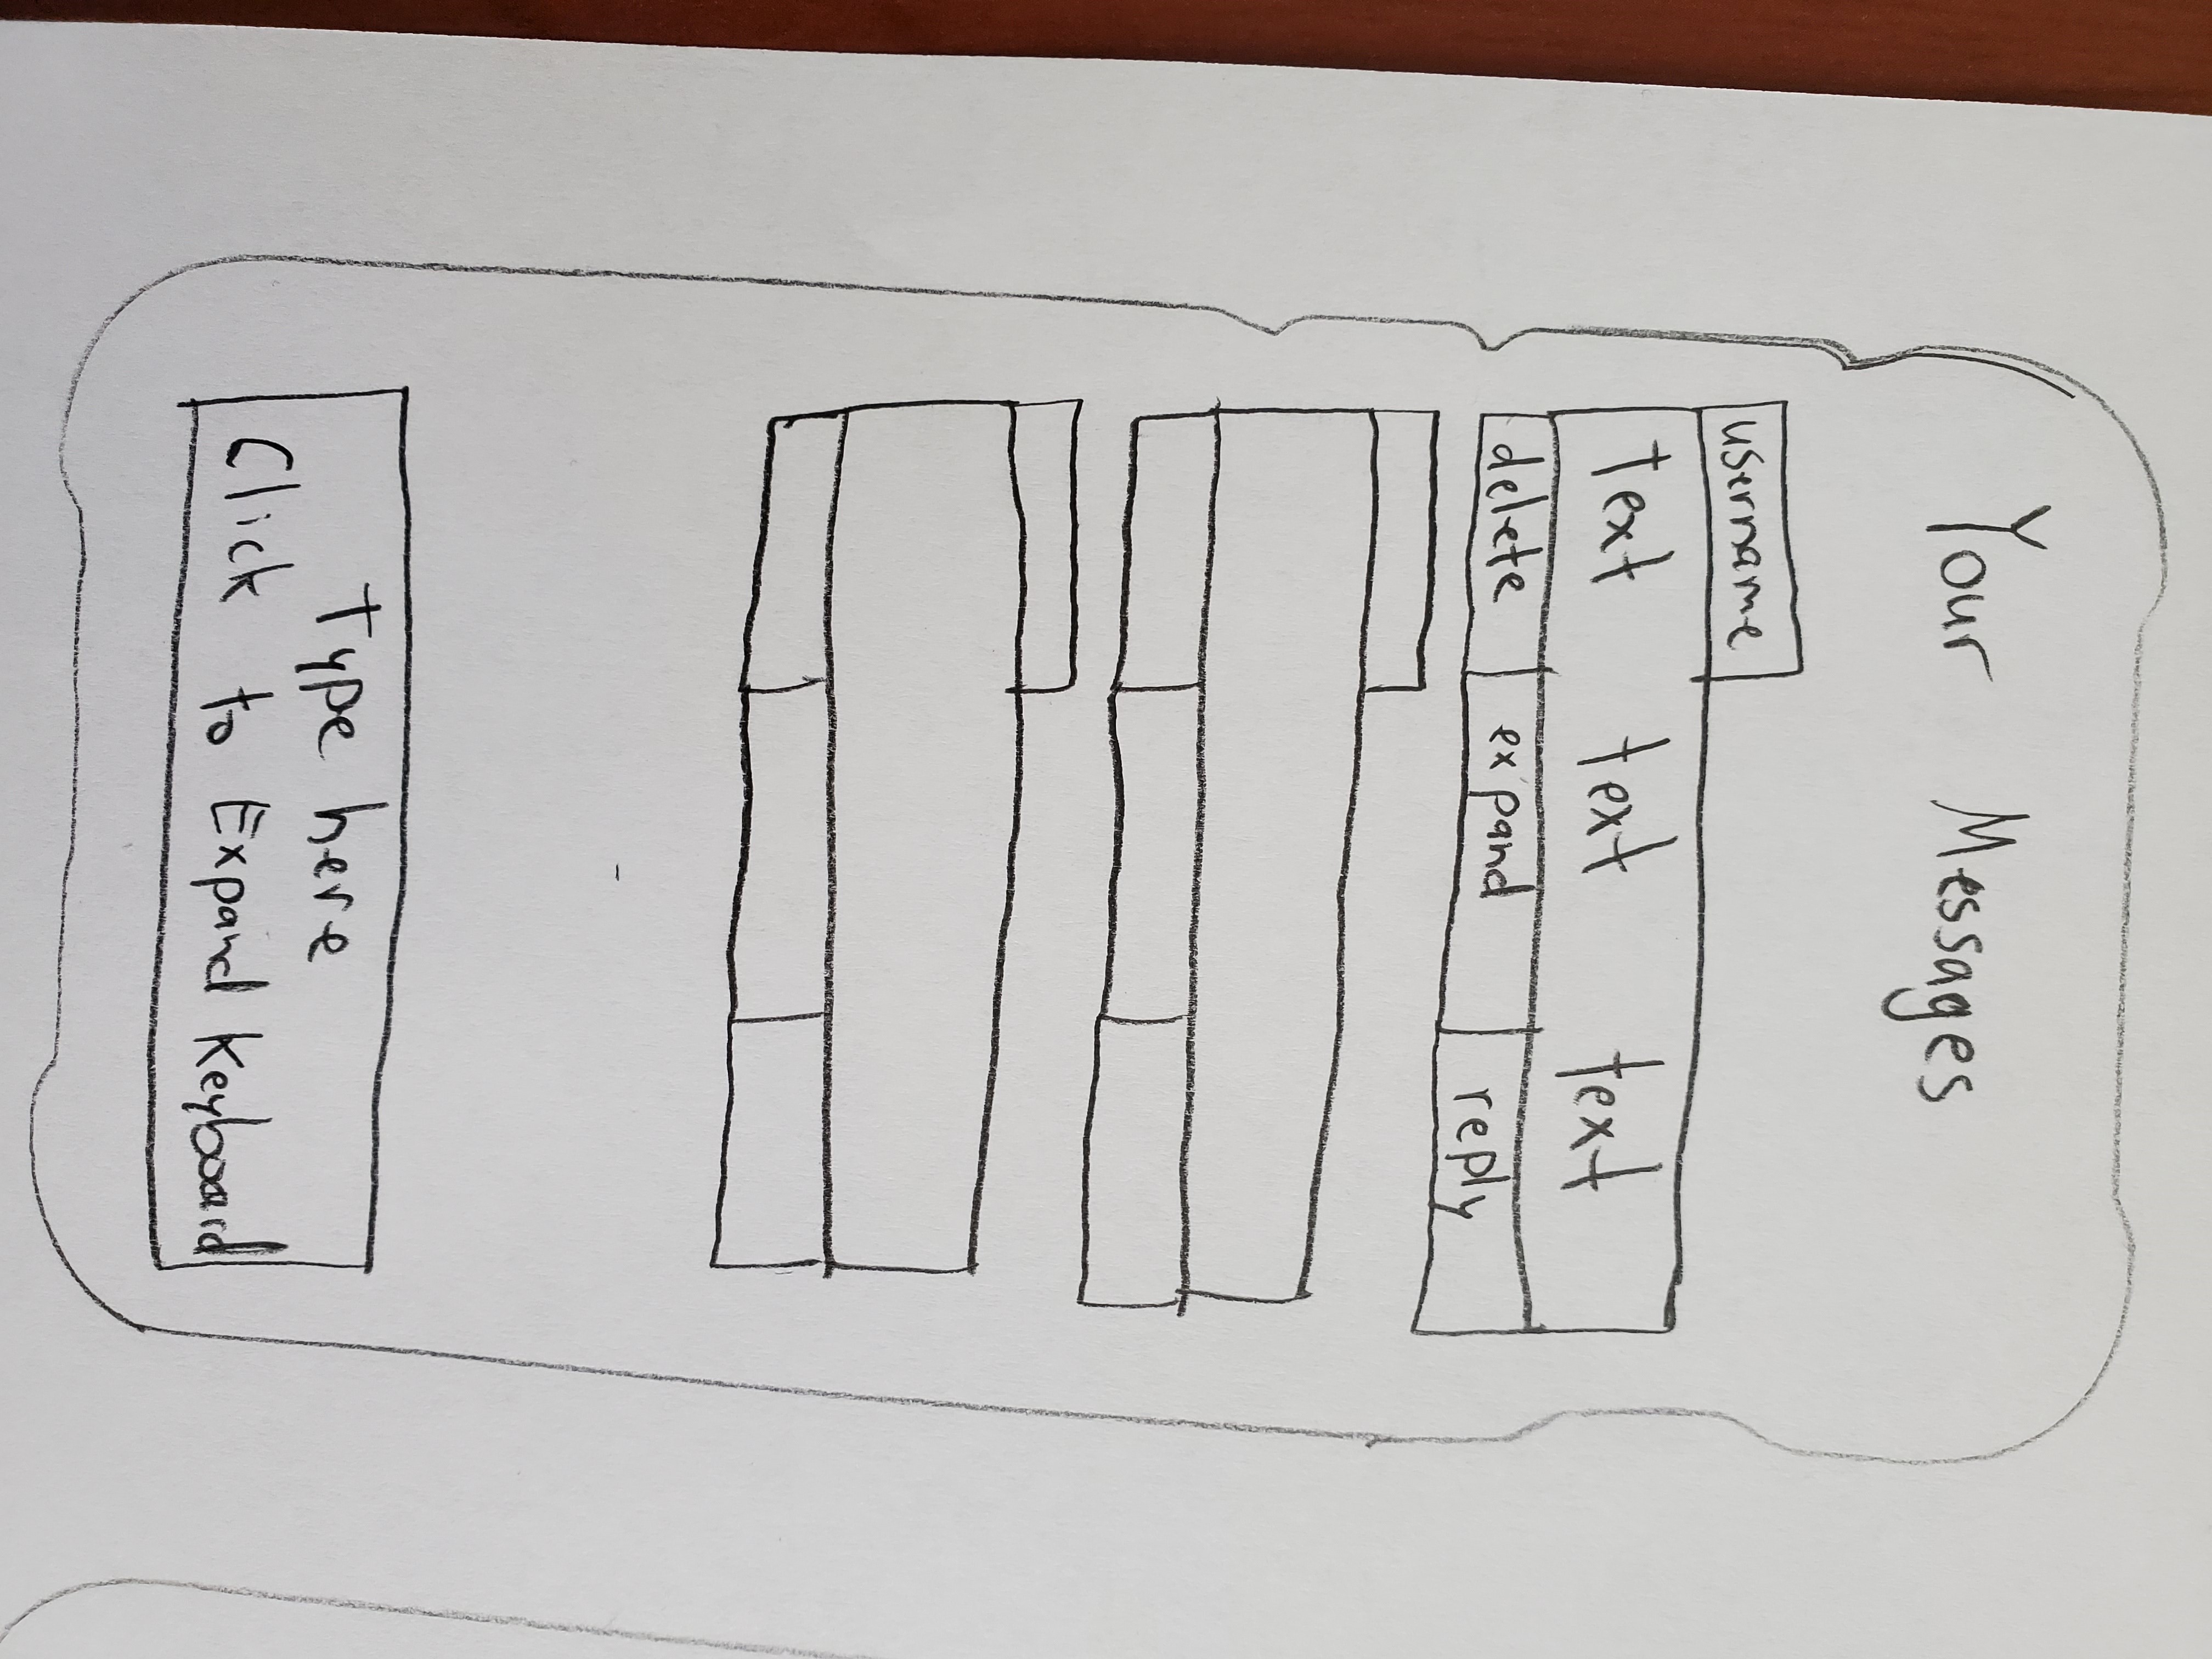 Your Messages
username
Text text text
delete expand reply
Type here
Click to Expand Keyboard